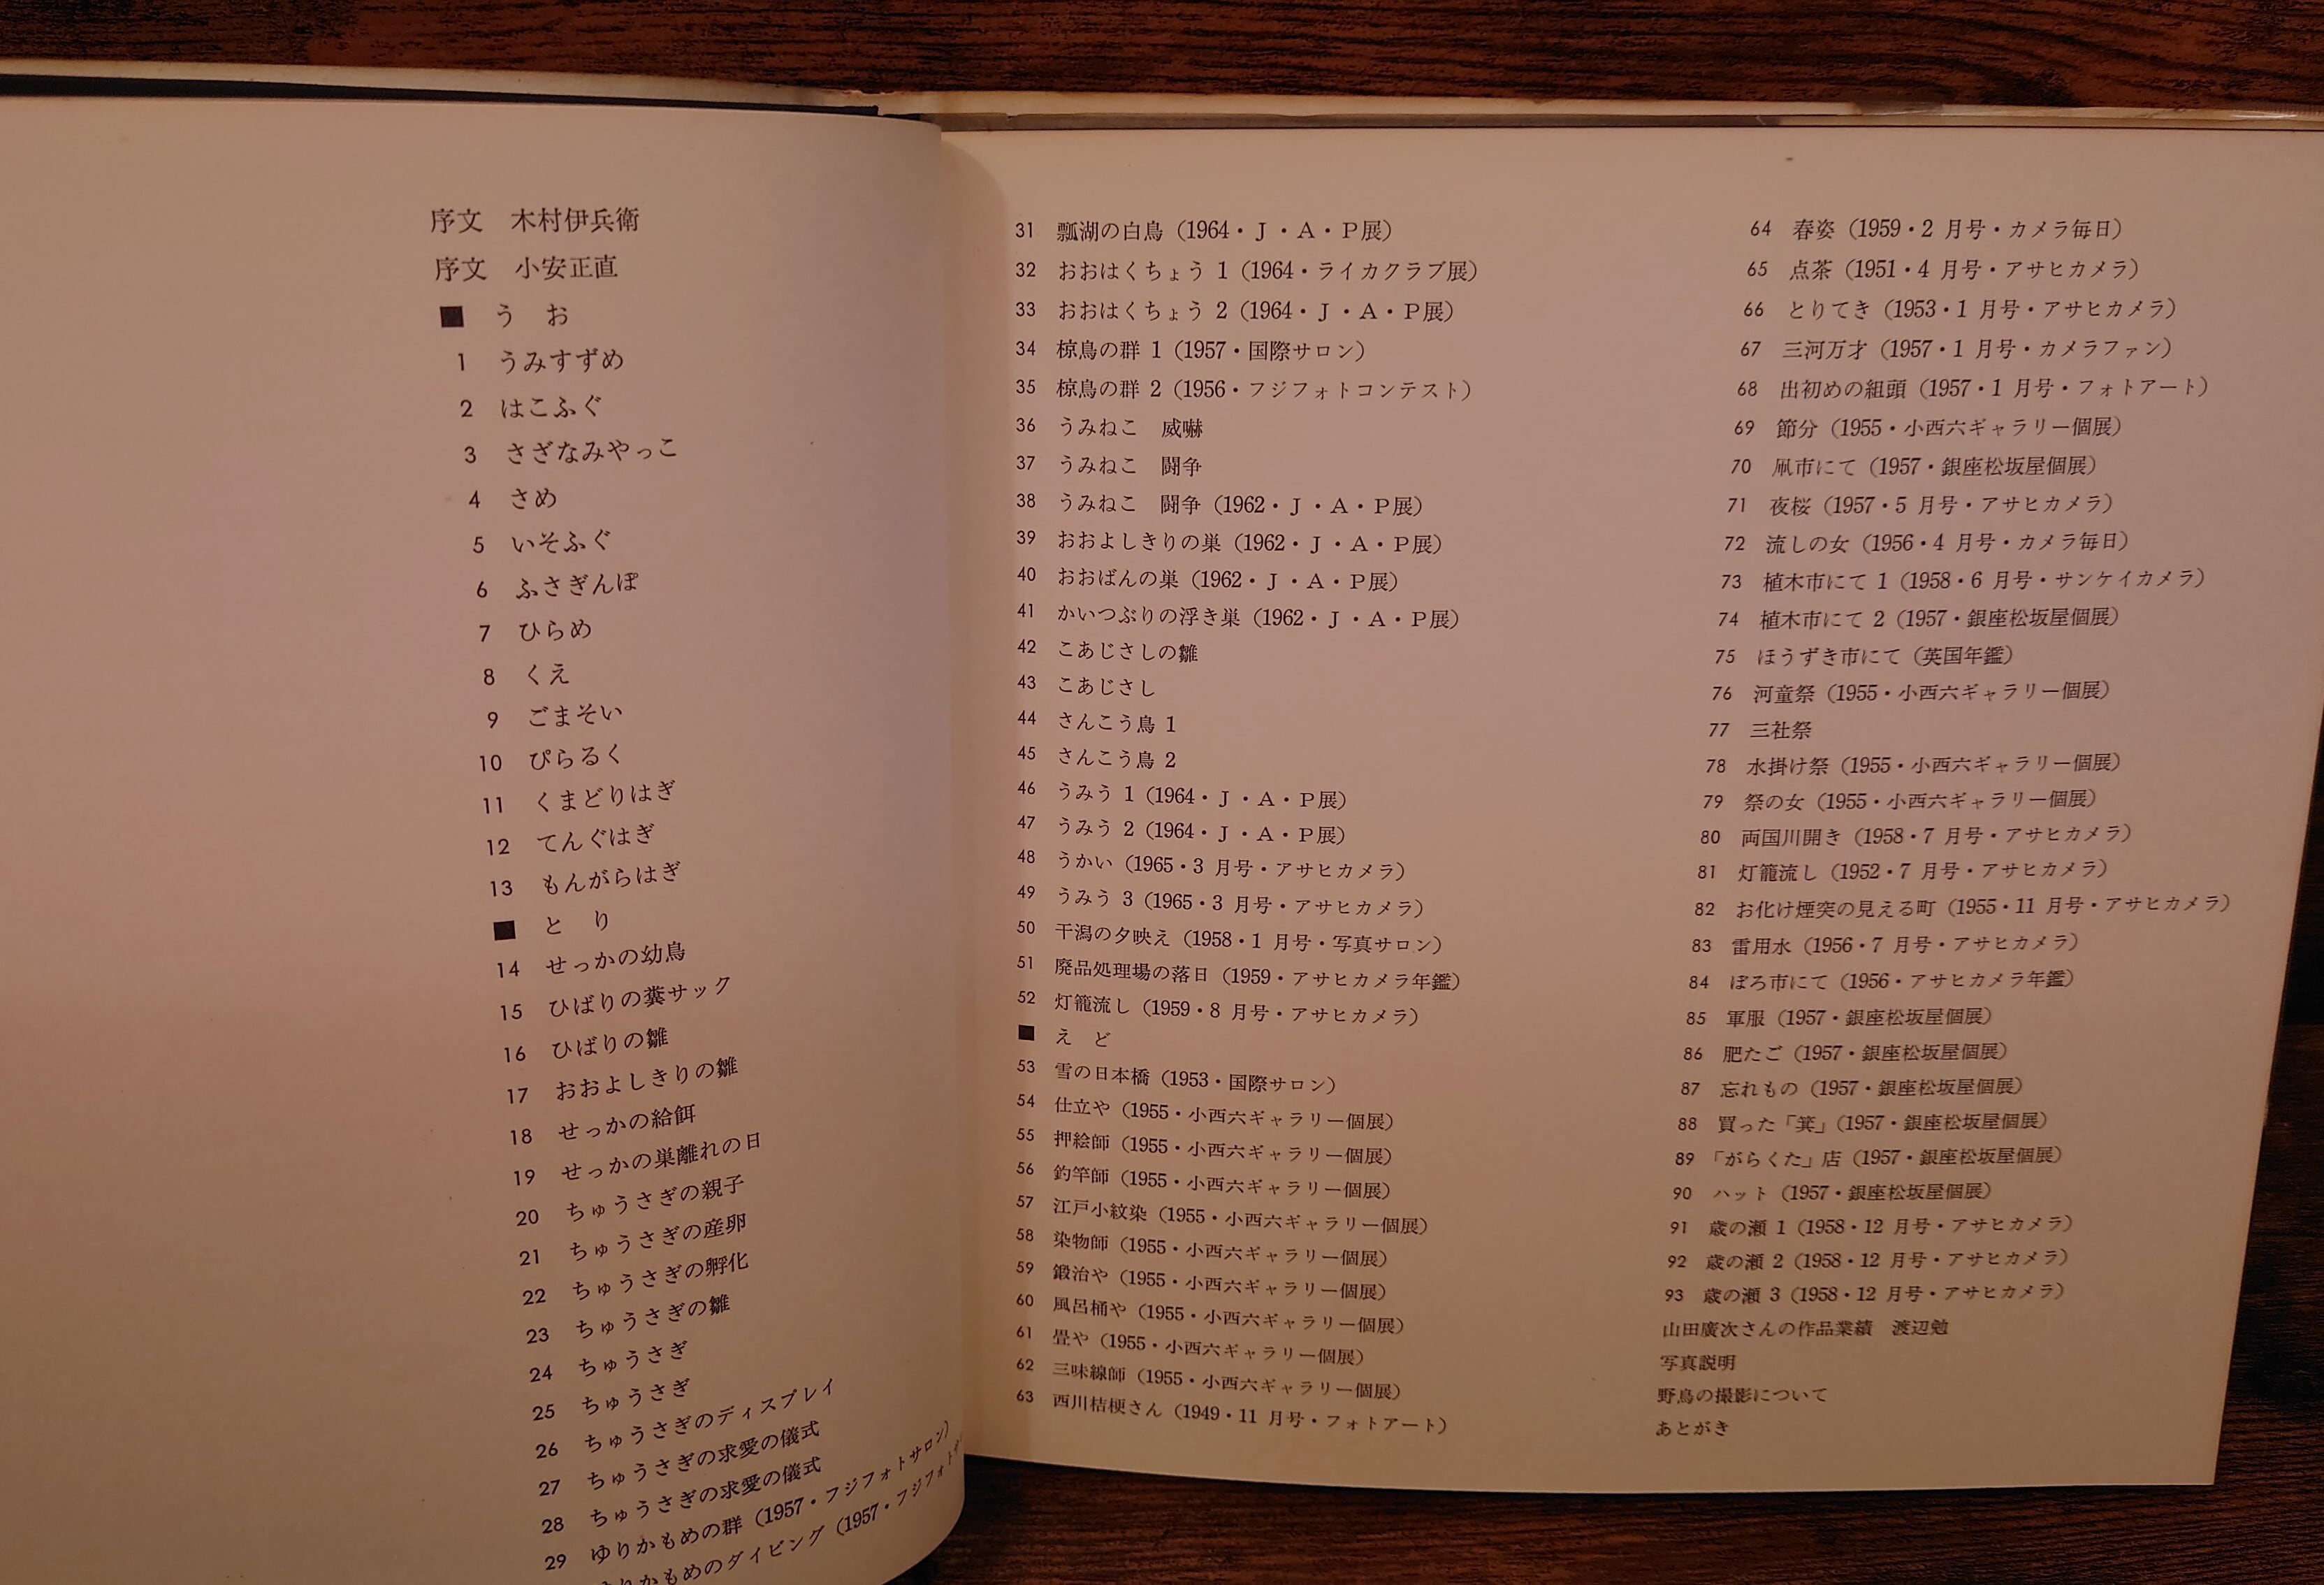 序文　木村伊兵衛
序文　小安正直
■　う　お
1　うみすずめ
2　はこふぐ
3　さざなみやっこ
4　さめ
5　いそふぐ
6　ふさぎんぽ
7　ひらめ
8　くえ
9　ごまそい
10　ぴらるく
11　くまどりはぎ
12　てんぐはぎ
13　もんがらはぎ
■　と　り
14　せっかの幼鳥
15　ひばりの糞サック
16　ひばりの雛
17　おおよしきりの雛
18　せっかの給餌
19　せっかの巣離れの日
20　ちゅうさぎの親子
21　ちゅうさぎの産卵
22　ちゅうさぎの孵化
23　ちゅうさぎの雛
24　ちゅうさぎ
25　ちゅうさぎ
26　ちゅうさぎのディスプレイ
27　ちゅうさぎの求愛の儀式
28　ちゅうさぎの求愛の儀式
29　ゆりかもめの群（1957・フジフォトサロン）
りかもめのダイビング（1957・フジフォト
31　瓢湖の白鳥（1964・J・A・P展）
32　おおはくちょう 1（1964・ライカクラブ展）
33　おおはくちょう 2（1964・J・A・P展）
34　椋鳥の群 1（1957・国際サロン）
35　椋鳥の群 2（1956・フジフォトコンテスト）
36　うみねこ　威嚇
37　うみねこ　闘争
38　うみねこ　闘争（1962・J・A・P展）
39　おおよしきりの巣（1962・J・A・P展）
40　おおばんの巣（1962・J・A・P展）
41　かいつぶりの浮き巣（1962・J・A・P展）
42　こあじさしの雛
43　こあじさし
44　さんこう鳥 1
45　さんこう鳥 2
46　うみう 1（1964・J・A・P展）
47　うみう 2（1964・J・A・P展）
48　うかい（1965・3 月号・アサヒカメラ）
49　うみう 3（1965・3 月号・アサヒカメラ）
50　干潟の夕映え（1958・1 月号・写真サロン）
51　廃品処理場の落日（1959・アサヒカメラ年鑑）
52　灯籠流し（1959・8 月号・アサヒカメラ）
■　え　ど
53　雪の日本橋（1953・国際サロン）
54　仕立や（1955・小西六ギャラリー個展）
55　押絵師（1955・小西六ギャラリー個展）
56　釣竿師（1955・小西六ギャラリー個展）
57　江戸小紋染（1955・小西六ギャラリー個展）
58　染物師（1955・小西六ギャラリー個展）
59　鍛冶や（1955・小西六ギャラリー個展）
60　風呂桶や（1955・小西六ギャラリー個展）
61　畳や（1955・小西六ギャラリー個展）
62　三味線師（1955・小西六ギャラリー個展）
63　西川桔梗さん（1949・11 月号・フォトアート）
64　春姿（1959・2 月号・カメラ毎日）
65　点茶（1951・4 月号・アサヒカメラ）
66　とりてき（1953・1 月号・アサヒカメラ）
67　三河万才（1957・1 月号・カメラファン）
68　出初めの組頭（1957・1 月号・フォトアート）
69　節分（1955・小西六ギャラリー個展）
70　凧市にて（1957・銀座松坂屋個展）
71　夜桜（1957・5 月号・アサヒカメラ）
72　流しの女（1956・4 月号・カメラ毎日）
73　植木市にて 1（1958・6 月号・サンケイカメラ）
74　植木市にて 2（1957・銀座松坂屋個展）
75　ほうずき市にて（英国年鑑）
76　河童祭（1955・小西六ギャラリー個展）
77　三社祭
78　水掛け祭（1955・小西六ギャラリー個展）
79　祭の女（1955・小西六ギャラリー個展）
80　両国川開き（1958・7 月号・アサヒカメラ）
81　灯籠流し（1952・7 月号・アサヒカメラ）
82　お化け煙突の見える町（1955・11 月号・アサヒカメラ）
83　雷用水（1956・7 月号・アサヒカメラ）
84　ぼろ市にて（1956・アサヒカメラ年鑑）
85　軍服（1957・銀座松坂屋個展）
86　肥たご（1957・銀座松坂屋個展）
87　忘れもの（1957・銀座松坂屋個展）
88　買った「箕」（1957・銀座松坂屋個展）
89　「がらくた」店（1957・銀座松坂屋個展）
90　ハット（1957・銀座松坂屋個展）
91　歳の瀬 1（1958・12 月号・アサヒカメラ）
92　歳の瀬 2（1958・12 月号・アサヒカメラ）
93　歳の瀬 3（1958・12 月号・アサヒカメラ）
山田廣次さんの作品業績　渡辺勉
写真説明
野鳥の撮影について
あとがき